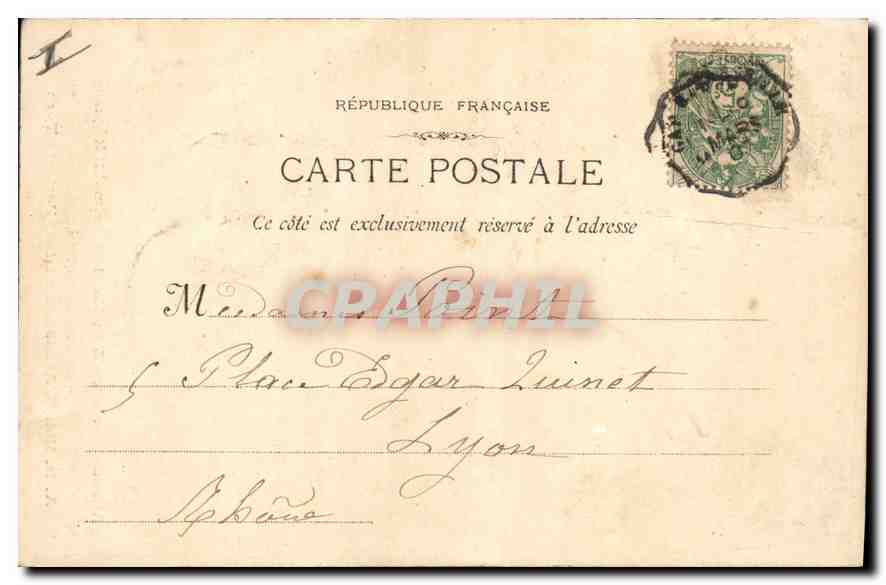 RÉPUBLIQUE FRANÇAISE
CARTE POSTALE
Ce côté est exclusivement réservé à l'adresse
Mesdames Point
5 Place Edgar Quinet
Lyon
Rhône
CPAPHIL